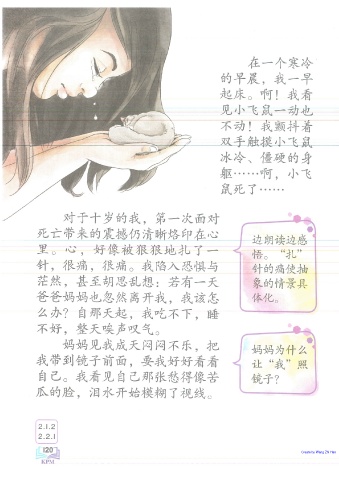 在一个寒冷
的早晨，我一早
起床。啊！我看
见小飞鼠一动也
不动！我颤抖着
双手触摸小飞鼠
冰冷、僵硬的身
躯……啊，小飞
鼠死了……
对于十岁的我，第一次面对
死亡带来的震撼仍清晰烙印在心
里。心，好像被狠狠地扎了一
针，很痛，很痛。我陷入恐惧与
茫然，甚至胡思乱想：若有一天
爸爸妈妈也忽然离开我，我该怎
么办？自那天起，我吃不下，睡
不好，整天唉声叹气。
妈妈见我成天闷闷不乐，把
我带到镜子前面，要我好好看看
自己。我看见自己那张愁得像苦
瓜的脸，泪水开始模糊了视线。
边朗读边感
悟。“扎”
针的痛使抽
象的情景具
体化。
妈妈为什么
让“我”照
镜子？
2.1.2
2.2.1
120
KPM